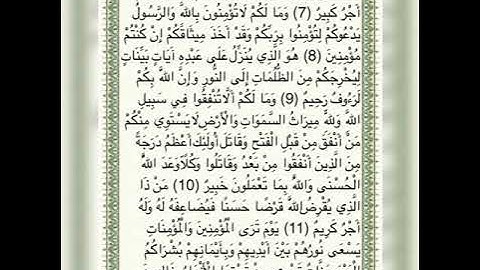 أَجْرٌ كَبِيرٌ (7) وَمَا لَكُمْ لَاتُؤْمِنُونَ بِاللَّهِ وَالرَّسُولُ
يَدْعُوكُمْ لِتُؤْمِنُوا بِرَبِّكُمْ وَقَدْ أَخَذَ مِيثَاقَكُمْ إِنْ كُنْتُمْ
مُؤْمِنِينَ (8) هُوَ الَّذِي يُنَزِّلُ عَلَى عَبْدِهِ آيَاتٍ بَيِّنَاتٍ
لِيُخْرِجَكُمْ مِنَ الظُّلُمَاتِ إِلَى النُّورِ وَإِنَّ اللَّهَ بِكُمْ
لَرَءُوفٌ رَحِيمٌ (9) وَمَا لَكُمْ أَلَّاتُنْفِقُوا فِي سَبِيلِ
اللَّهِ وَلِلَّهِ مِيرَاثُ السَّمَوَاتِ وَالْأَرْضِ لَايَسْتَوِي مِنْكُمْ
مَنْ أَنْفَقَ مِنْ قَبْلِ الْفَتْحِ وَقَاتَلَ أُولَئِكَ أَعْظَمُ دَرَجَةً
مِنَ الَّذِينَ أَنْفَقُوا مِنْ بَعْدُ وَقَاتَلُوا وَكُلًّاوَعَدَ اللَّهُ
الْحُسْنَى وَاللَّهُ بِمَا تَعْمَلُونَ خَبِيرٌ (10) مَنْ ذَا
الَّذِي يُقْرِضُ اللَّهَ قَرْضًا حَسَنًا فَيُضَاعِفَهُ لَهُ وَلَهُ
أَجْرٌ كَرِيمٌ (11) يَوْمَ تَرَى الْمُؤْمِنِينَ وَالْمُؤْمِنَاتِ
يَسْعَى نُورُهُمْ بَيْنَ أَيْدِيهِمْ وَبِأَيْمَانِهِمْ بُشْرَاكُمُ